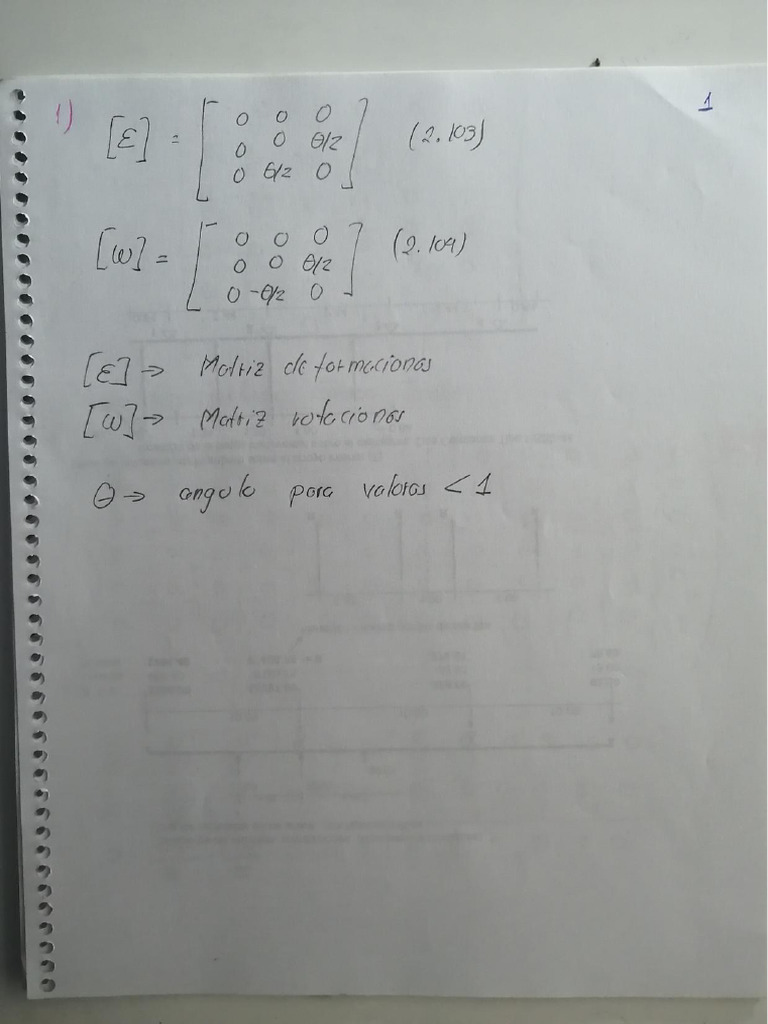 1
1) [ε] = [ 0 0 0
0 0 θ/2
0 θ/2 0 ] (2.103)
[ω] = [ 0 0 0
0 0 θ/2
0 -θ/2 0 ] (2.104)
[ε] → Matriz deformaciones
[ω] → Matriz rotaciones
θ → angulo para valores < 1